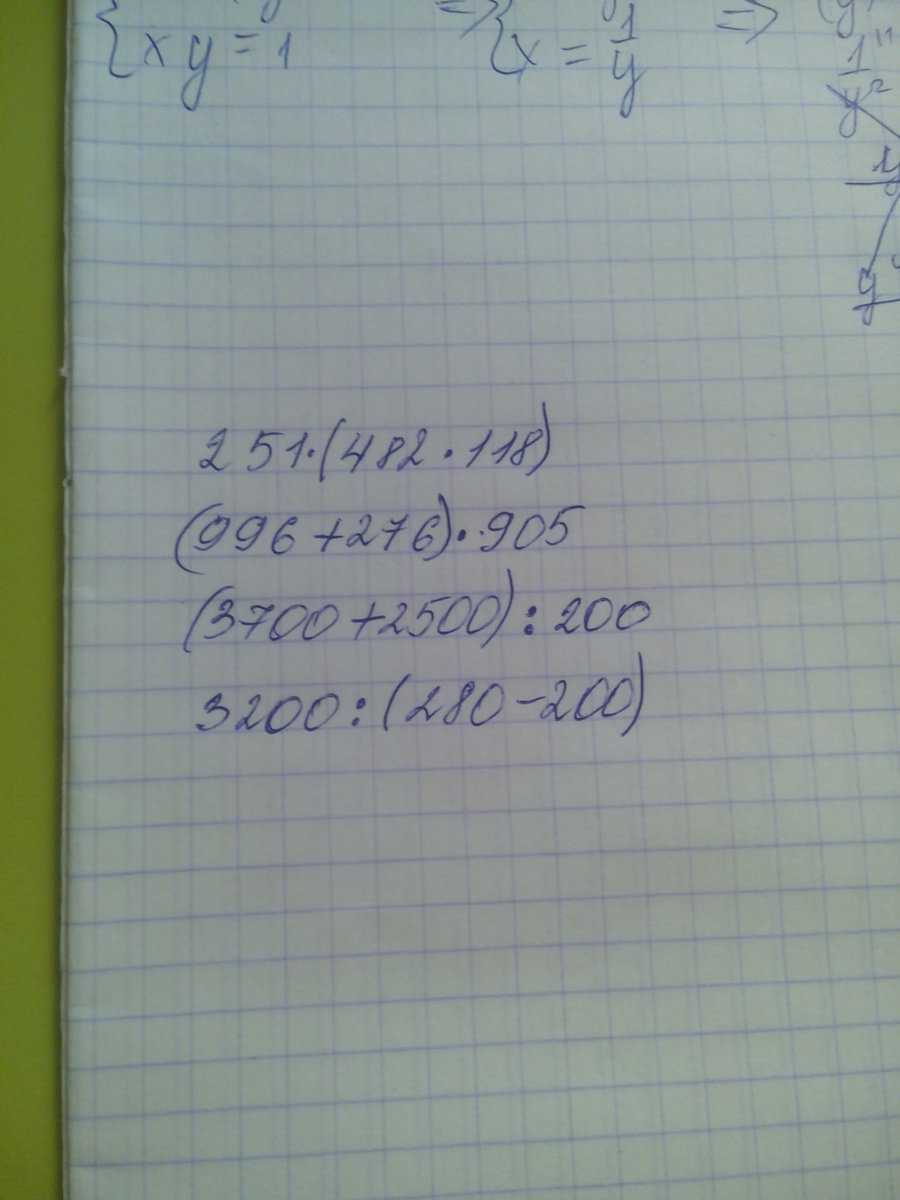 {xy = 1 => {x = 1/y =>
1/y²
251·(482·118)
(996+276)·905
(3700+2500):200
3200:(280-200)